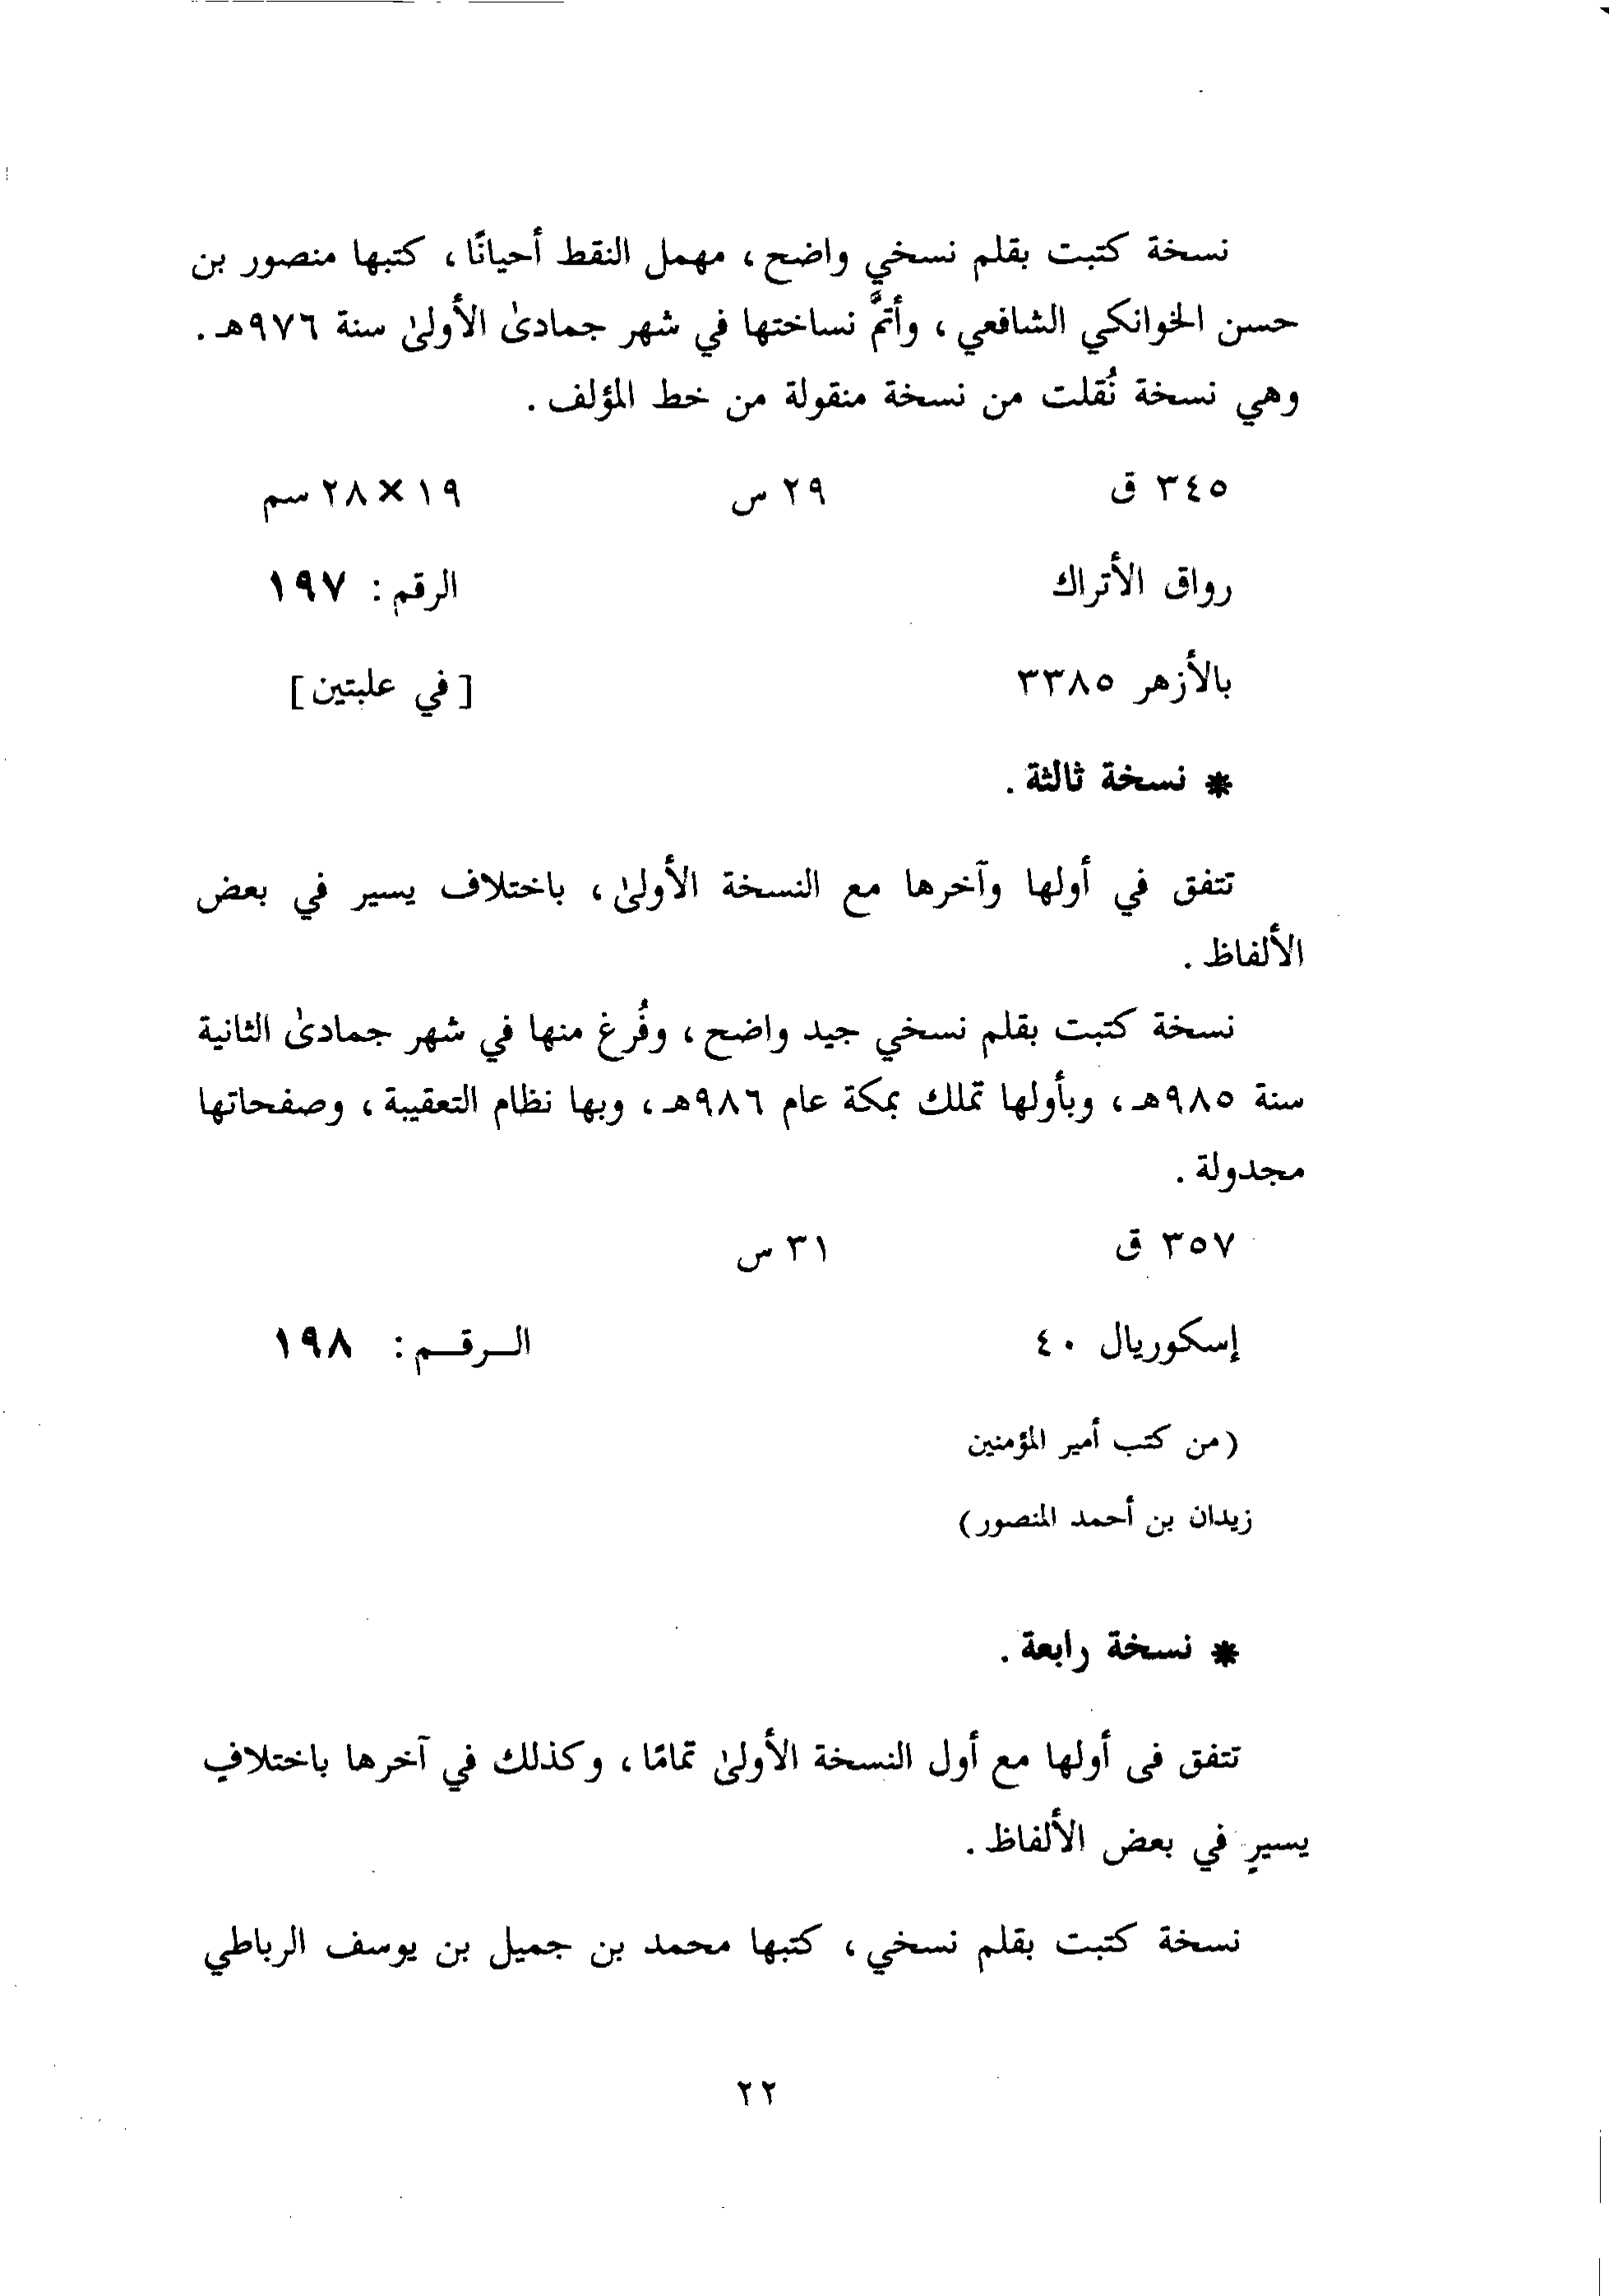 نسخة كتبت بقلم نسخي واضح، مهمل النقط أحيانًا، كتبها منصور بن
حسن الخوانكي الشافعي، وأتمَّ نساختها في شهر جمادىٰ الأولىٰ سنة ٩٧٦هـ.
وهي نسخة نُقلت من نسخة منقولة من خط المؤلف.
٣٤٥ ق ٢٩ س ١٩×٢٨ سم
رواق الأتراك الرقم: ١٩٧
بالأزهر ٣٣٨٥ [في علبتين]
* نسخة ثالثة.
تتفق في أولها وآخرها مع النسخة الأولىٰ، باختلاف يسير في بعض
الألفاظ.
نسخة كتبت بقلم نسخي جيد واضح، وفُرغ منها في شهر جمادىٰ الثانية
سنة ٩٨٥هـ، وبأولها تملك بمكة عام ٩٨٦هـ، وبها نظام التعقيبة، وصفحاتها
مجدولة.
٣٥٧ ق ٣١ س
إسكوريال ٤٠ الـرقـم: ١٩٨
(من كتب أمير المؤمنين
زيدان بن أحمد المنصور)
* نسخة رابعة.
تتفق فى أولها مع أول النسخة الأولىٰ تمامًا، وكذلك في آخرها باختلافٍ
يسيرٍ في بعض الألفاظ.
نسخة كتبت بقلم نسخي، كتبها محمد بن جميل بن يوسف الرباطي
٢٢